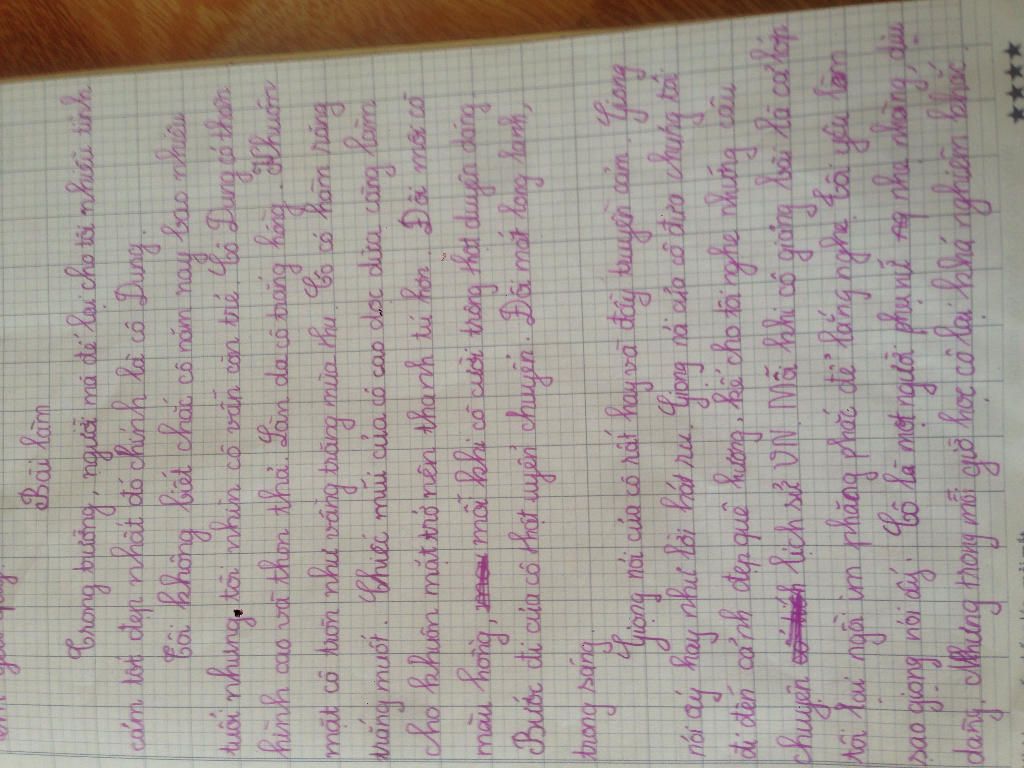 Bài làm
Trong trường, người mà để lại cho tôi nhiều tình
cảm tốt đẹp nhất đó chính là cô Dung.
Tôi không biết chắc cô năm nay bao nhiêu
tuổi nhưng tôi nhìn cô vẫn còn trẻ. Cô Dung có thân
hình cao và thon thả. Làn da cô trắng hồng. Khuôn
mặt cô tròn như vầng trăng mùa thu. Cô có hàm răng
trắng muốt. Chiếc mũi của cô cao dọc dừa càng làm
cho khuôn mặt trở nên thanh tú hơn. Đôi môi cô
màu hồng, mỗi khi cô cười trông thật duyên dáng.
Bước đi của cô thật uyển chuyển. Đôi mắt long lanh,
trong sáng.
Giọng nói của cô rất hay và đầy truyền cảm. Giọng
nói ấy hay như lời hát ru. Giọng nói của cô đưa chúng tôi
đi đến cảnh đẹp quê hương, kể cho tôi nghe những câu
chuyện lịch sử VN. Mỗi khi cô giảng bài là cả lớp
tôi lại ngồi im phăng phắc để lắng nghe. Tôi yêu làm
sao giọng nói ấy. Cô là một người phụ nữ nhẹ nhàng, dịu
dàng. Nhưng trong mỗi giờ học cô lại khá nghiêm khắc